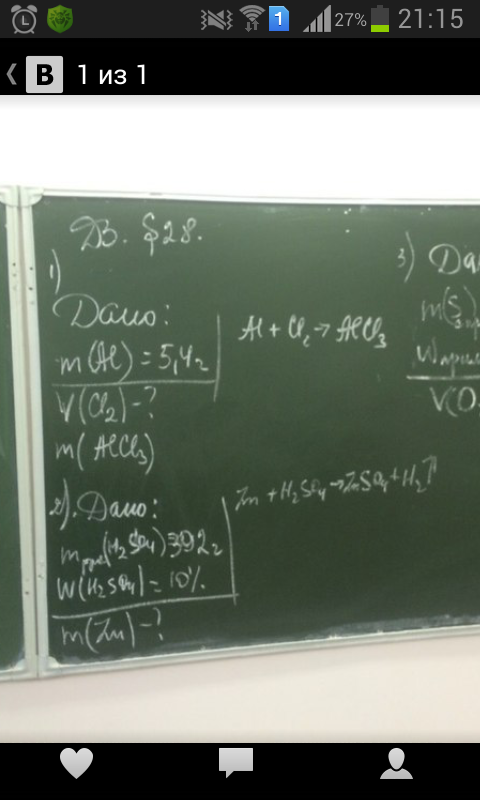 27% 21:15
B 1 из 1
ДЗ. §28.
1)
Дано:
m(Al) = 5,4г
V(Cl₂) - ?
m(AlCl₃)
Al + Cl₂ → AlCl₃
2). Дано:
(H₂SO₄) 392г
W(H₂SO₄) = 10%
m(Zn) - ?
Zn + H₂SO₄ → ZnSO₄ + H₂↑
3)
m(S
V(O